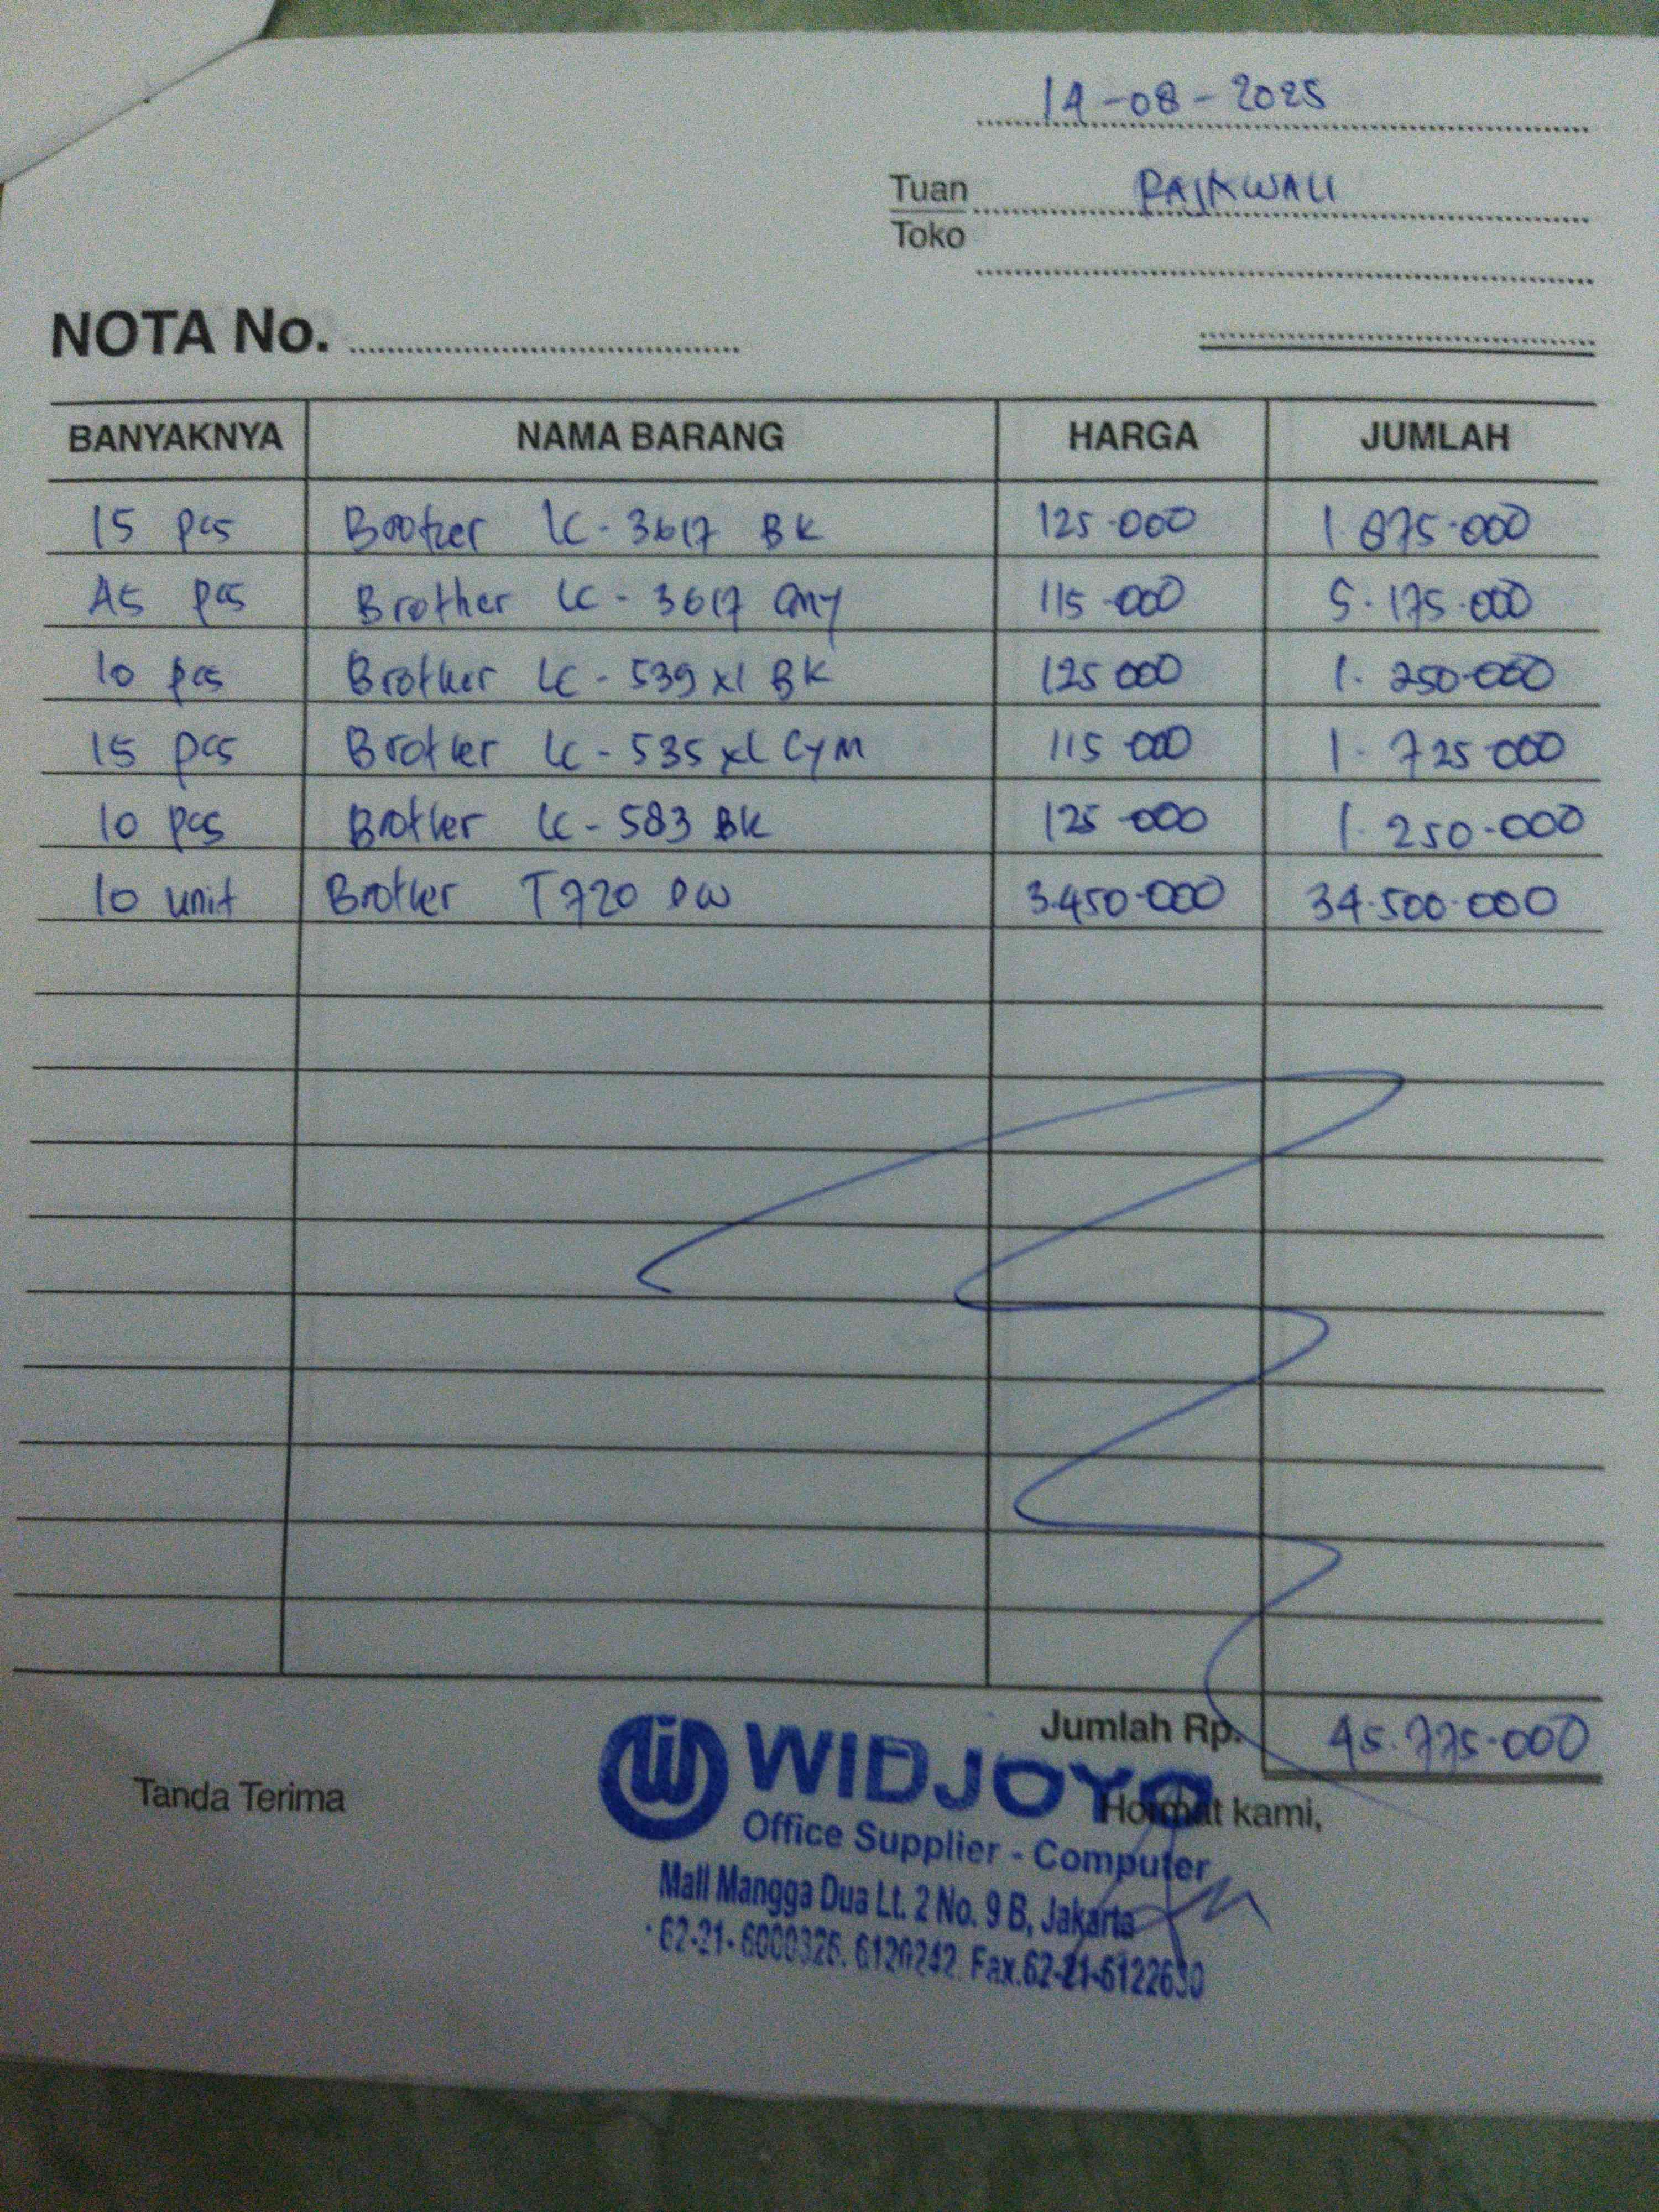 14-08-2025
Tuan RAJAWALI
Toko
NOTA No.
BANYAKNYA NAMA BARANG HARGA JUMLAH
15 pcs Brother LC-3617 BK 125.000 1.875.000
45 pcs Brother LC-3617 CMY 115.000 5.175.000
10 pcs Brother LC-539 XL BK 125 000 1.250.000
15 pcs Brother LC-535 XL CYM 115 000 1.725 000
10 pcs Brother LC-583 BK 125 000 1.250.000
10 unit Brother T720 DW 3.450.000 34.500.000
Jumlah Rp. 45.775.000
Tanda Terima Hormat kami,
WIDJOYO
Office Supplier - Computer
Mall Mangga Dua Lt. 2 No. 9 B, Jakarta
62-21-6000326. 6120242. Fax.62-21-6122630